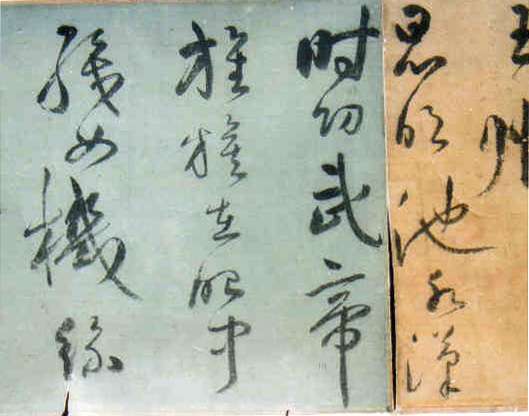 王州
昆明池水漢
時功武帝
旌旗在眼中
織女機絲